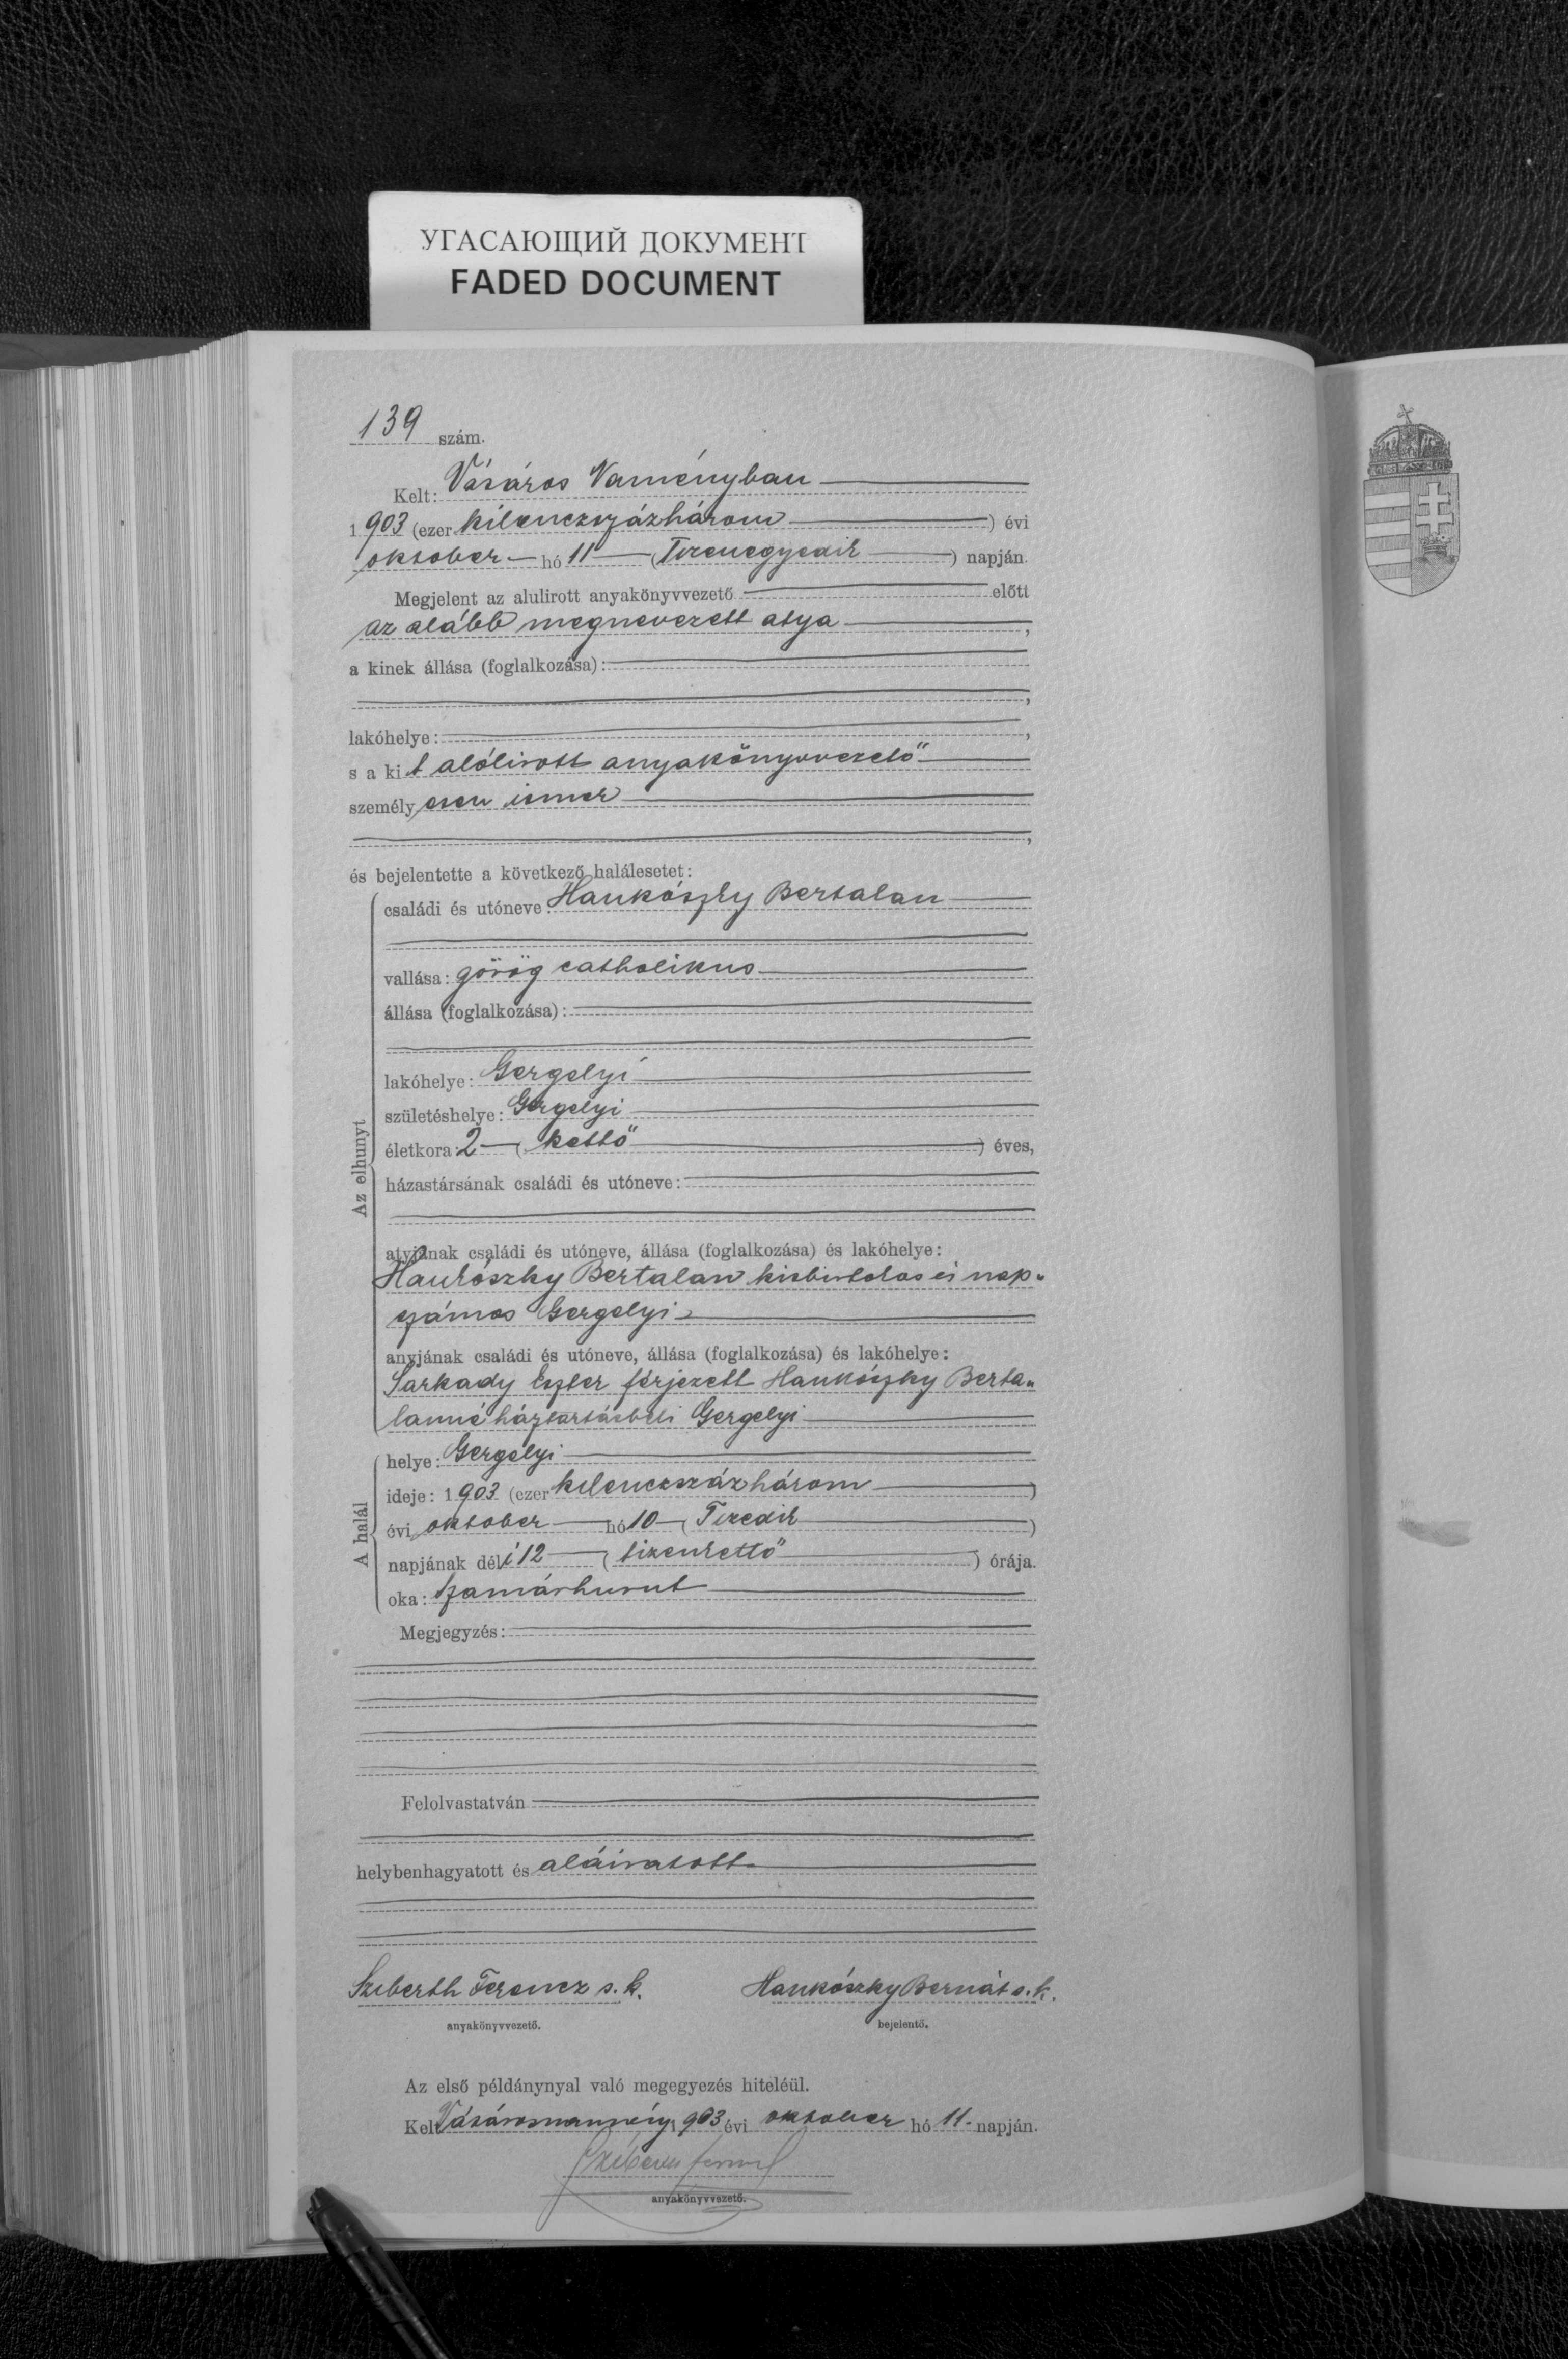 УГАСАЮЩИЙ ДОКУМЕНТ
FADED DOCUMENT
139 szám.
Kelt: Vásáros Naményban
1903 (ezer kilenczszázhárom ) évi
oktober hó 11 (Tizenegyedik ) napján.
Megjelent az alulirott anyakönyvvezető előtt
az alább megnevezett atya ,
a kinek állása (foglalkozása):
,
lakóhelye: ,
s a ki t alólirott anyakönyvvezető
személy esen ismer
,
és bejelentette a következő halálesetet:
Az elhunyt
családi és utóneve: Hankószky Bertalan
vallása: görög catholikus
állása (foglalkozása):
lakóhelye: Gergelyi
születéshelye: Gergelyi
életkora: 2 ( kettő ) éves,
házastársának családi és utóneve:
atyjának családi és utóneve, állása (foglalkozása) és lakóhelye:
Hankószky Bertalan kisbirtokos és nap„
számos Gergelyi
anyjának családi és utóneve, állása (foglalkozása) és lakóhelye:
Sarkady Eszter férjezett Hankószky Berta„
lanné háztartásbeli Gergelyi
A halál
helye: Gergelyi
ideje: 1903 (ezer kilenczszázhárom )
évi oktober hó 10 ( Tizedik )
napjának dél i 12 ( tizenkettő ) órája.
oka: szamárhurut
Megjegyzés:
Felolvastatván
helybenhagyatott és aláiratott.
Sziberth Ferencz s. k. Hankószky Bernát s. k.
anyakönyvvezető. bejelentő.
Az első példánynyal való megegyezés hiteléül.
Kelt Vásárosnamény 1903 évi oktober hó 11. napján.
anyakönyvvezető.